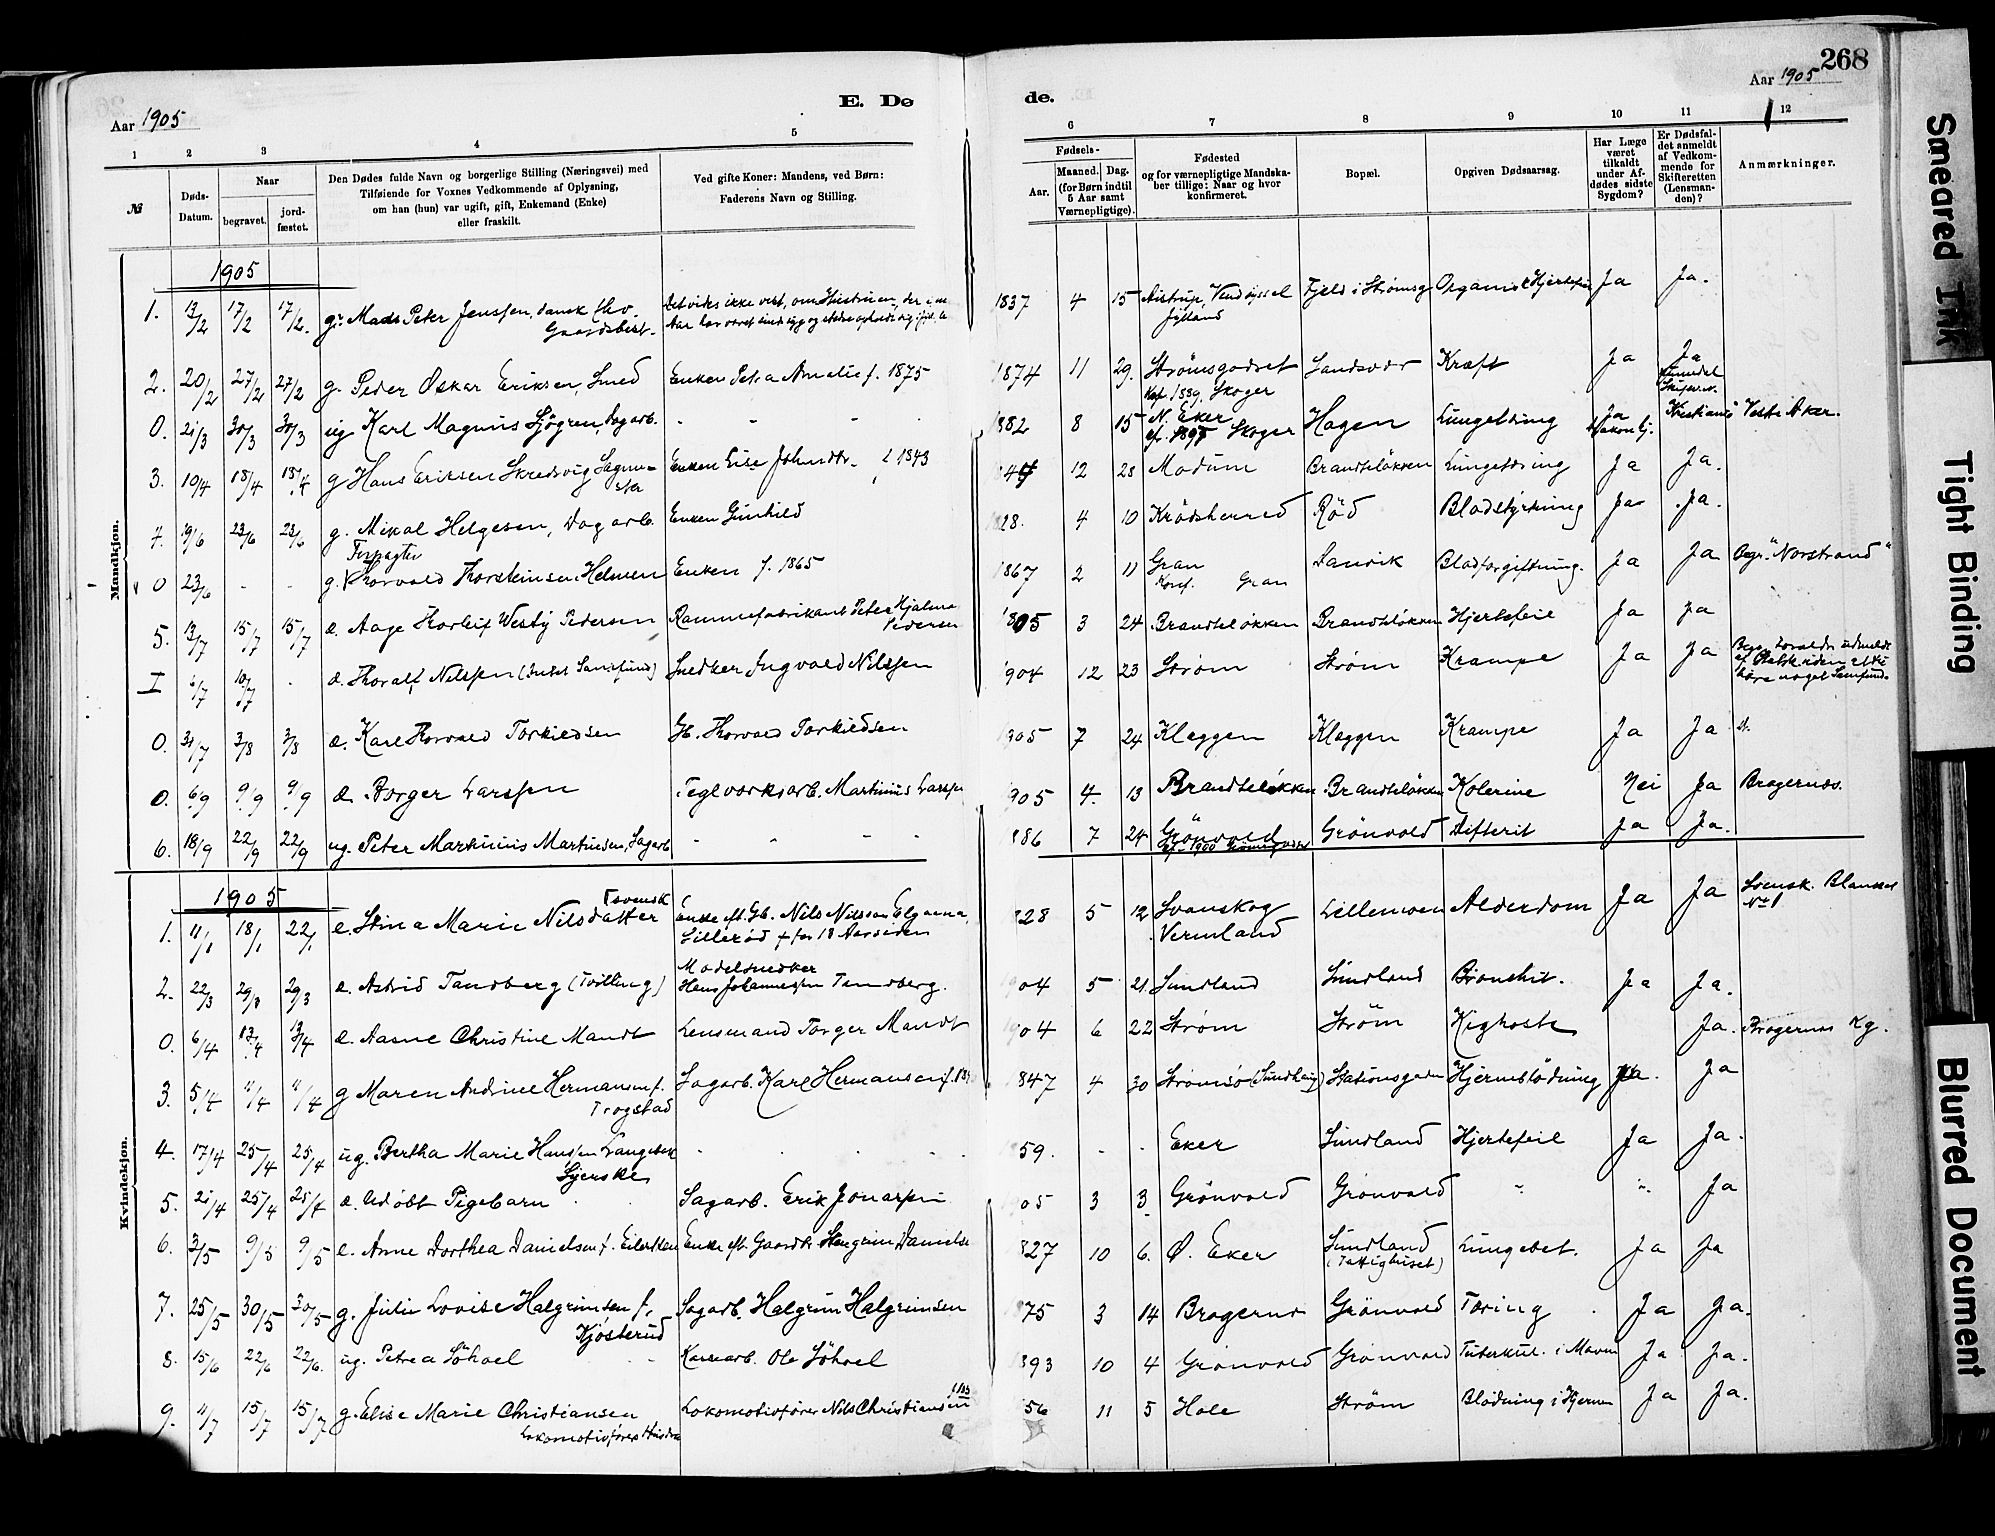 268
Aar 1905
E. Dø
de.
Aar 1905
1 2 3 4 5 6 7 8 9 10 11 12
№
Døds-Datum.
Naar
begravet.
jord-fæstet.
Den Dødes fulde Navn og borgerlige Stilling (Næringsvei) med
Tilføiende for Voxnes Vedkommende af Oplysning,
om han (hun) var ugift, gift, Enkemand (Enke)
eller fraskilt.
Ved gifte Koner: Mandens, ved Børn:
Faderens Navn og Stilling.
Fødsels-
Aar.
Maaned. Dag.
(for Børn indtil
5 Aar samt
Værnepligtige).
Fødested
og for værnepligtige Mandska-
ber tillige: Naar og hvor
konfirmeret.
Bopæl.
Opgiven Dødsaarsag.
Har Læge
været
tilkaldt
under Af-
dødes sidste
Sygdom?
Er Dødsfal-
det anmeldt
af Vedkom-
mende for
Skifteretten
(Lensman-
den)?
Anmærkninger.
Mandkjøn.
1905
1. 13/2 17/2 17/2. g. Mads Peter Jensen, dansk
Gaardsbest. 1837 4 15 Aistrup, Vendsyssel Fjeld i Strømsg Organisk Hjertefeil Ja Ja.
Jylland
2. 20/2 27/2 27/2 g. Peder Oskar Eriksen, Smed Enken Petra Amalie f. 1875 1874 11 29. Strømsgodset Sandsvær Kræft Ja Ja
Kof. 1889. Skoger
0. 21/3 30/3 30/3 ug Karl Magnus Sjøgren, Dagarb. - - - - 1882 8 15 N. Eker Hagen Lungebetændelse Ja Kristiania Vestre Aker.
Skoger
3. 10/4 18/4 18/4 g Hans Eriksen Skredsvig Enken Lise f 1843 12 28 Modum Brandtsløkken Lungetæring Ja Ja.
4. 19/6 23/6 23/6 g. Mikal Helgesen, Dagarb. Enken Gunhild 1828. 4 10 Krødsherred Rød Blodstyrtning Ja Ja.
Forpagter
0 23/6 - - g. Thorvald Thorsteinsen Helmen Enken f. 1865 1867 2 11 Gran Blodforgiftning. Ja Ja Begr. "Norstrand"
Konf. Gran
5. 13/7 15/7 15/7 æ. Aage Thorleif Westy Pedersen Rammefabrikant Peter Hjalmar
Pedersen 1905 3 24 Brandtsløkken Brandtsløkken Hjertefeil Ja Ja
I 6/7 10/7 . æ. Thoralf Nilssen Snedker Ingvald Nilssen 1904 12 23 Strøm Strøm Krampe Ja Ja
0. 31/7 3/8 3/8 æ. Karl Thorvald Torkildsen Gb. Thorvald Torkildsen 1905 7 24 Kleggen Kleggen Krampe Ja Ja
0. 6/9 9/9 9/9 æ. Borger Larssen Teglværksarb. Martinius Larssen 1905 4. 13 Brandtsløkken Brandtsløkken Kolerine Nei Ja Bragernes.
6. 18/9 22/9 22/9 ug. Peter Markinius Martinsen, Sagarb - - - - 1886 7 24 Grønvold Grønvold Difterit Ja Ja.
Kvindekjøn.
1905
svensk
1. 11/1 18/1 22/1 e. Stina Marie Nilsdatter Enke eft. Gb. Nils Nilsson Elgaena,
Lillerød † for 18 Aar siden 1828 5 12 Svanskog Lillemoen Alderdom Ja Ja Svensk. Blanket
Vermland No 1
2. 22/3 29/3 29/3 æ. Astrid Tandberg (Tvilling) Modelsnedker
Hans Johannessen Tandberg. 1904 5 21. Sundland Sundland Bronchit. Ja Ja.
0. 6/4 13/4 13/4 æ. Aasne Christine Mandt Lensmand Torger Mandt 1904 6 22 Strøm Strøm Kighoste Ja. Bragernes Kg.
3. 5/4 11/4 11/4 g Maren Andrine Hermansen f.
Trogstad Sagarb. Karl Hermansen 1847 4 30 Strømsø (Sundhaug) Stationsgaden Hjerneblødning Ja. Ja
4. 17/4 25/4 25/4 ug. Bertha Marie Hanssen Langebæk
Syerske 1859. - - Eker Sundland Hjertefeil Ja Ja.
5. 21/4 25/4 25/4 æ. Udøbt Pigebarn Sagarb. Erik Jonassen 1905 3 3 Grønvold Grønvold - - Ja
6. 3/5 9/5 9/5 e. Anne Dorthea Danielsen f. Eilertsen Enke eft. Gaardbr. Stengrim Danielse 1827 10 6. Ø. Eker Sundland Lungebet. Ja Ja
(Fattighuset)
7. 25/5 30/5 30/5 g. Julie Lovise Halgrimsen f.
Kjøsterud Sagarb. Halgrim Halgrimsen 1875 3 14 Bragernes Grønvold Tæring Ja Ja.
8. 15/6 22/6 22/6. ug. Petrea Søhoel Karrearb. Ole Søhoel 1893 10 4 Grønvold Grønvold Tuberkul. i Maven Ja Ja.
9. 11/7 15/7 15/7 g. Elise Marie Christiansen
Lokomotivførers Hustru Lokomotivfører Nils Christiansen 1856 11 5 Hole Strøm Blødning i Hjernen Ja Ja.
Smeared Ink
Tight Binding
Blurred Document